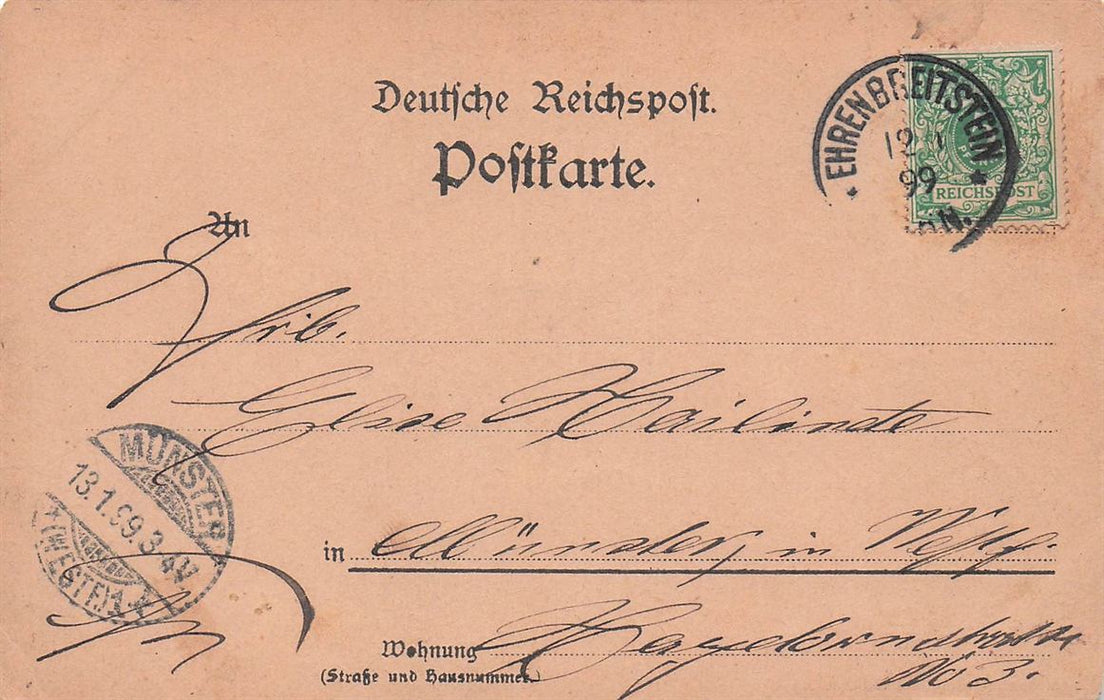 Deutsche Reichspost.
Postkarte.
EHRENBREITSTEIN
12 1
99
REICHSPOST
An
Frl.
Elise
in Münster in Westf.
MÜNSTER
13.1.99.3-4V
(WESTF.) 1
Wohnung
(Straße und Hausnummer.)
No 3.